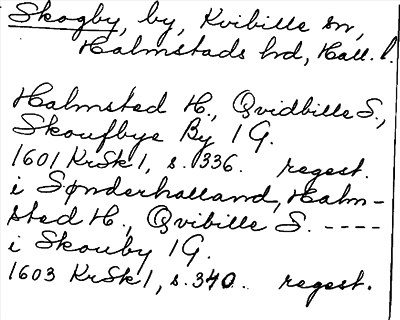 Skogby, by, Kvibille sn,
Halmstads hd, Hall. l.
Halmsted H., Qvidbille S.,
Skoufbye By 1 G.
1601 KrSk 1, s. 336. regest.
i Sønderhalland, Halm-
sted H., Qvibille S. ----
i Skouby 1 G.
1603 KrSk 1, s. 340. regest.